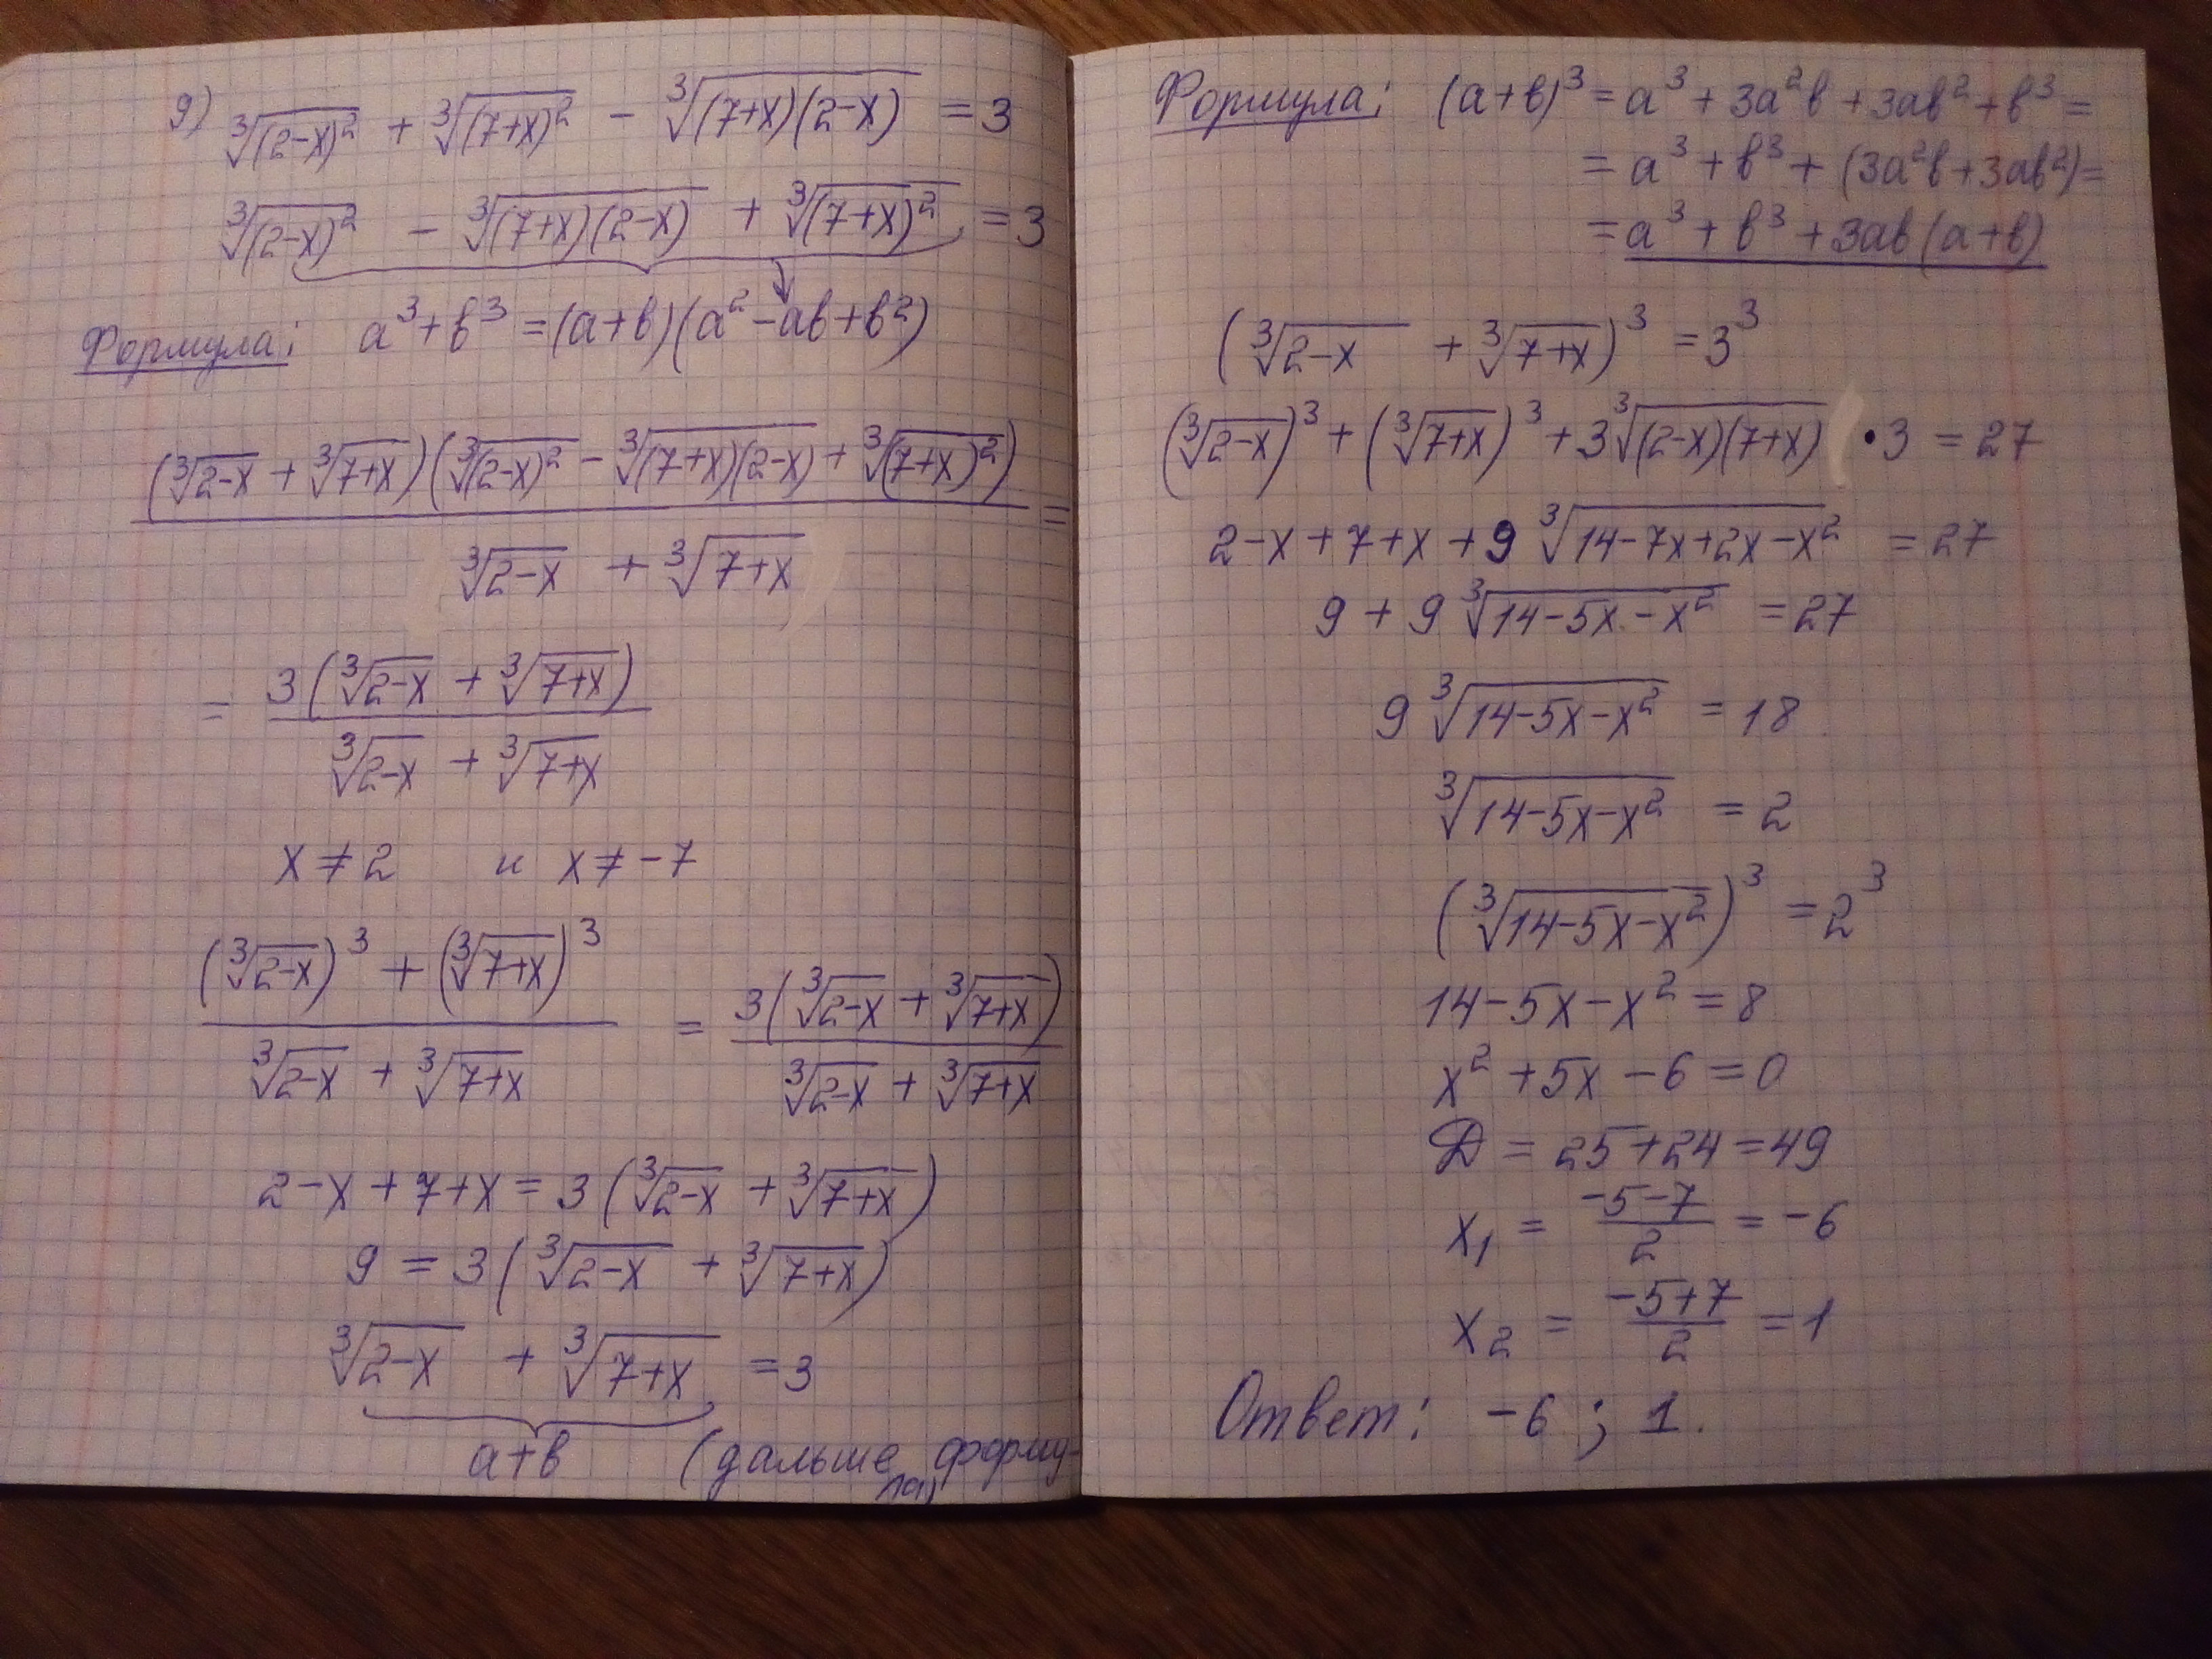 9) ∛(2-x)² + ∛(7+x)² - ∛(7+x)(2-x) = 3
∛(2-x)² - ∛(7+x)(2-x) + ∛(7+x)² = 3
Формула: a³+b³ = (a+b)(a²-ab+b²)
(∛2-x + ∛7+x)(∛(2-x)² - ∛(7+x)(2-x) + ∛(7+x)²) =
∛2-x + ∛7+x
= 3(∛2-x + ∛7+x)
∛2-x + ∛7+x
x ≠ 2 и x ≠ -7
(∛2-x)³ + (∛7+x)³ = 3(∛2-x + ∛7+x)
∛2-x + ∛7+x ∛2-x + ∛7+x
2-x+7+x = 3(∛2-x + ∛7+x)
9 = 3(∛2-x + ∛7+x)
∛2-x + ∛7+x = 3
a+b (дальше форму-
ла)
Формула: (a+b)³ = a³+3a²b+3ab²+b³ =
= a³+b³+(3a²b+3ab²) =
= a³+b³+3ab(a+b)
(∛2-x + ∛7+x)³ = 3³
(∛2-x)³ + (∛7+x)³ + 3∛(2-x)(7+x) · 3 = 27
2-x+7+x+9 ∛14-7x+2x-x² = 27
9 + 9 ∛14-5x-x² = 27
9 ∛14-5x-x² = 18
∛14-5x-x² = 2
(∛14-5x-x²)³ = 2³
14-5x-x² = 8
x²+5x-6=0
D = 25+24=49
x₁ = -5-7/2 = -6
x₂ = -5+7/2 = 1
Ответ: -6 ; 1.